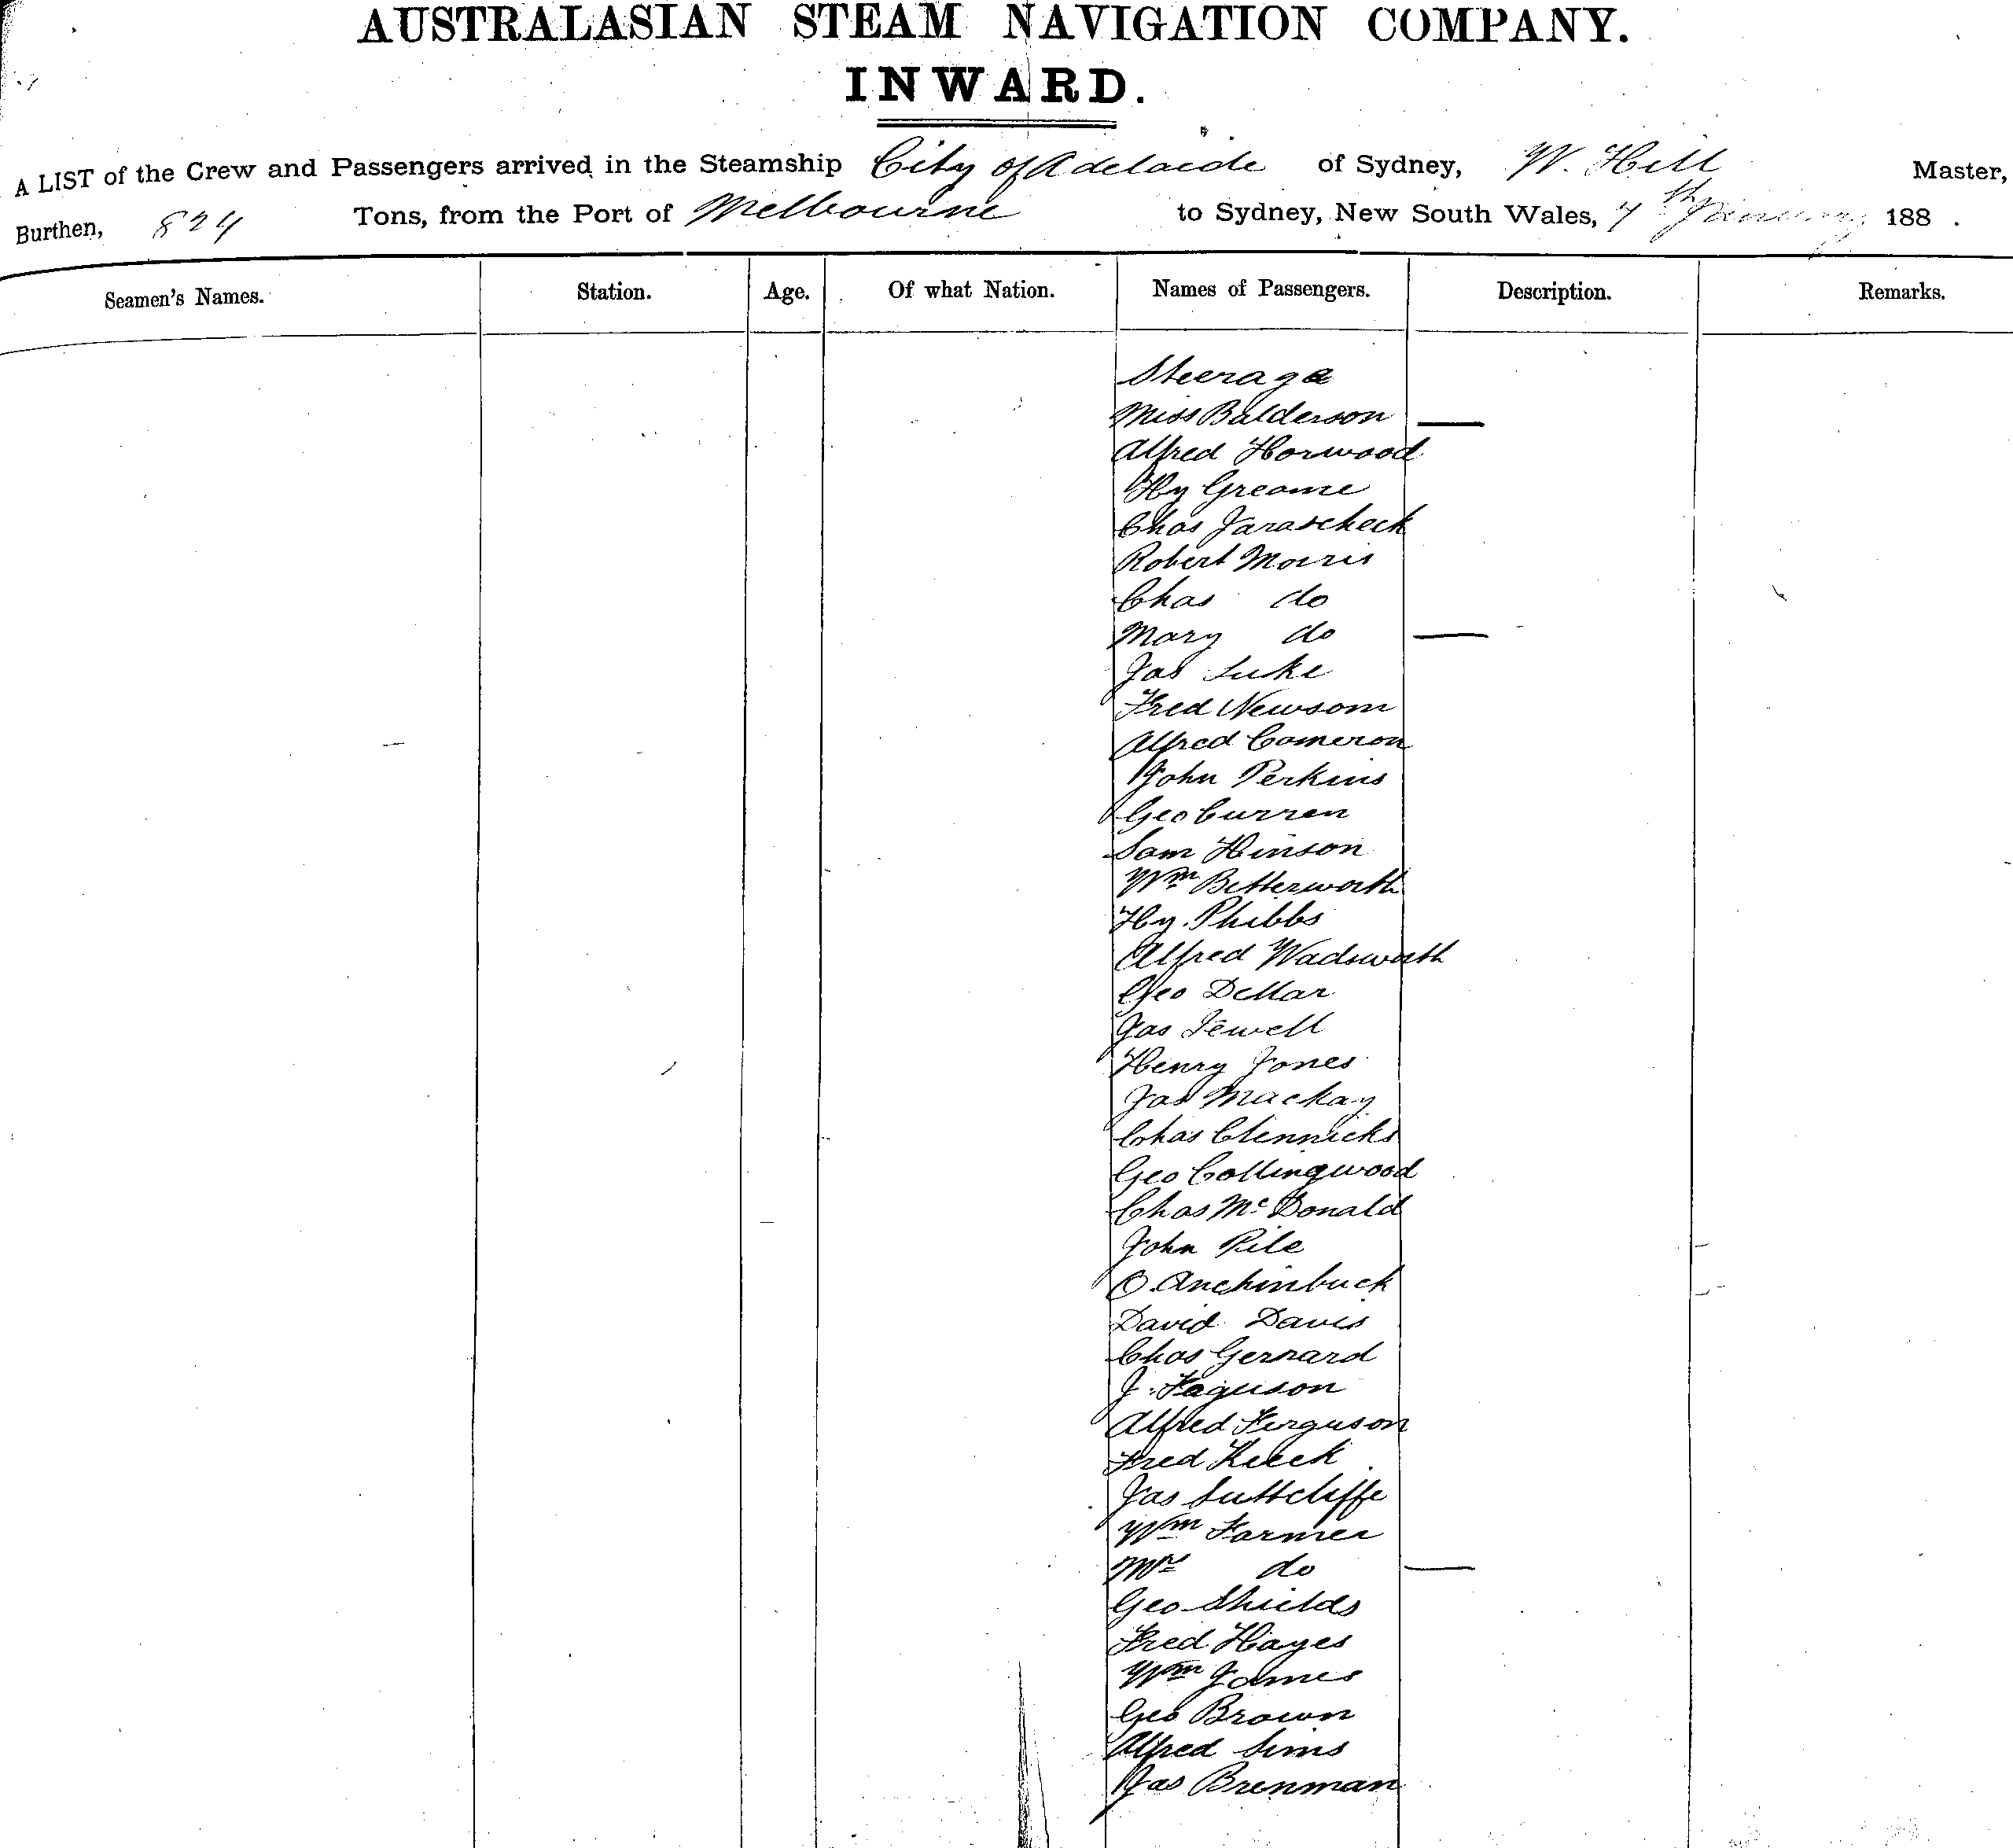 AUSTRALASIAN STEAM NAVIGATION COMPANY.
INWARD.
A LIST of the Crew and Passengers arrived in the Steamship City of Adelaide of Sydney, W. Hill Master,
Burthen, 824 Tons, from the Port of Melbourne to Sydney, New South Wales, 7th January 188 .
Seamen's Names. Station. Age. Of what Nation. Names of Passengers. Description. Remarks.
Steerage
Miss Balderson
Alfred Horwood
Hy Greame
Chas Jarascheck
Robert Morris
Chas do
Mary do
Jas Luke
Fred Newsom
Alfred Cameron
John Perkins
Geo Curren
Sam Hinson
Wm Betterworth
Hy. Phibbs
Alfred Wadsworth
Geo DeMar
Jas Jewell
Henry Jones
Jas Mackay
Chas Clennicks
Geo Collingwood
Chas McDonald
John Pile
O. Anchinbuck
David Davis
Chas Gerrard
J. Faguson
Alfred Ferguson
Fred Keeck
Jas Suttcliffe
Wm Farmer
Mrs do
Geo Shields
Fred Hayes
Wm James
Geo Brown
Alfred Sims
Jas Brenman